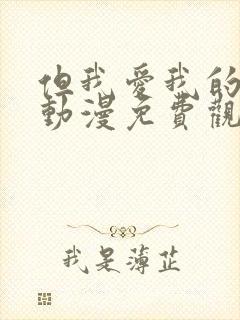 但我愛我的
動漫免費觀
我是薄芷